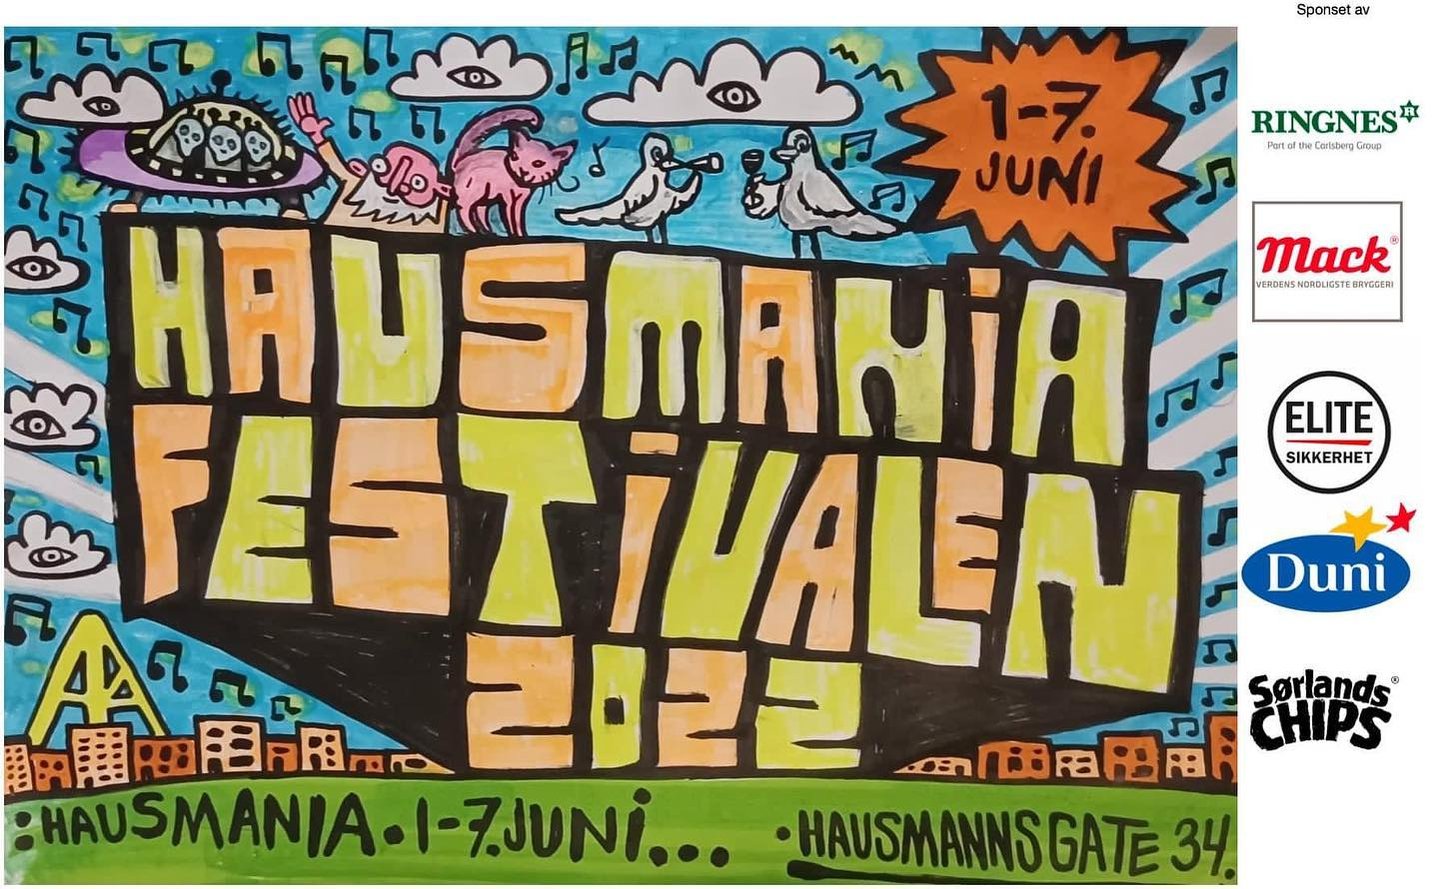 Sponset av
1-7.
JUNI
HAUSMANiA
FESTiVALEN
2022
:HAUSMANIA.1-7.JUNi...
•HAUSMANNSGATE 34.
RINGNES
Part of the Carlsberg Group
Mack®
VERDENS NORDLIGSTE BRYGGERI
ELITE
SIKKERHET
Duni
Sørlands®
CHIPS